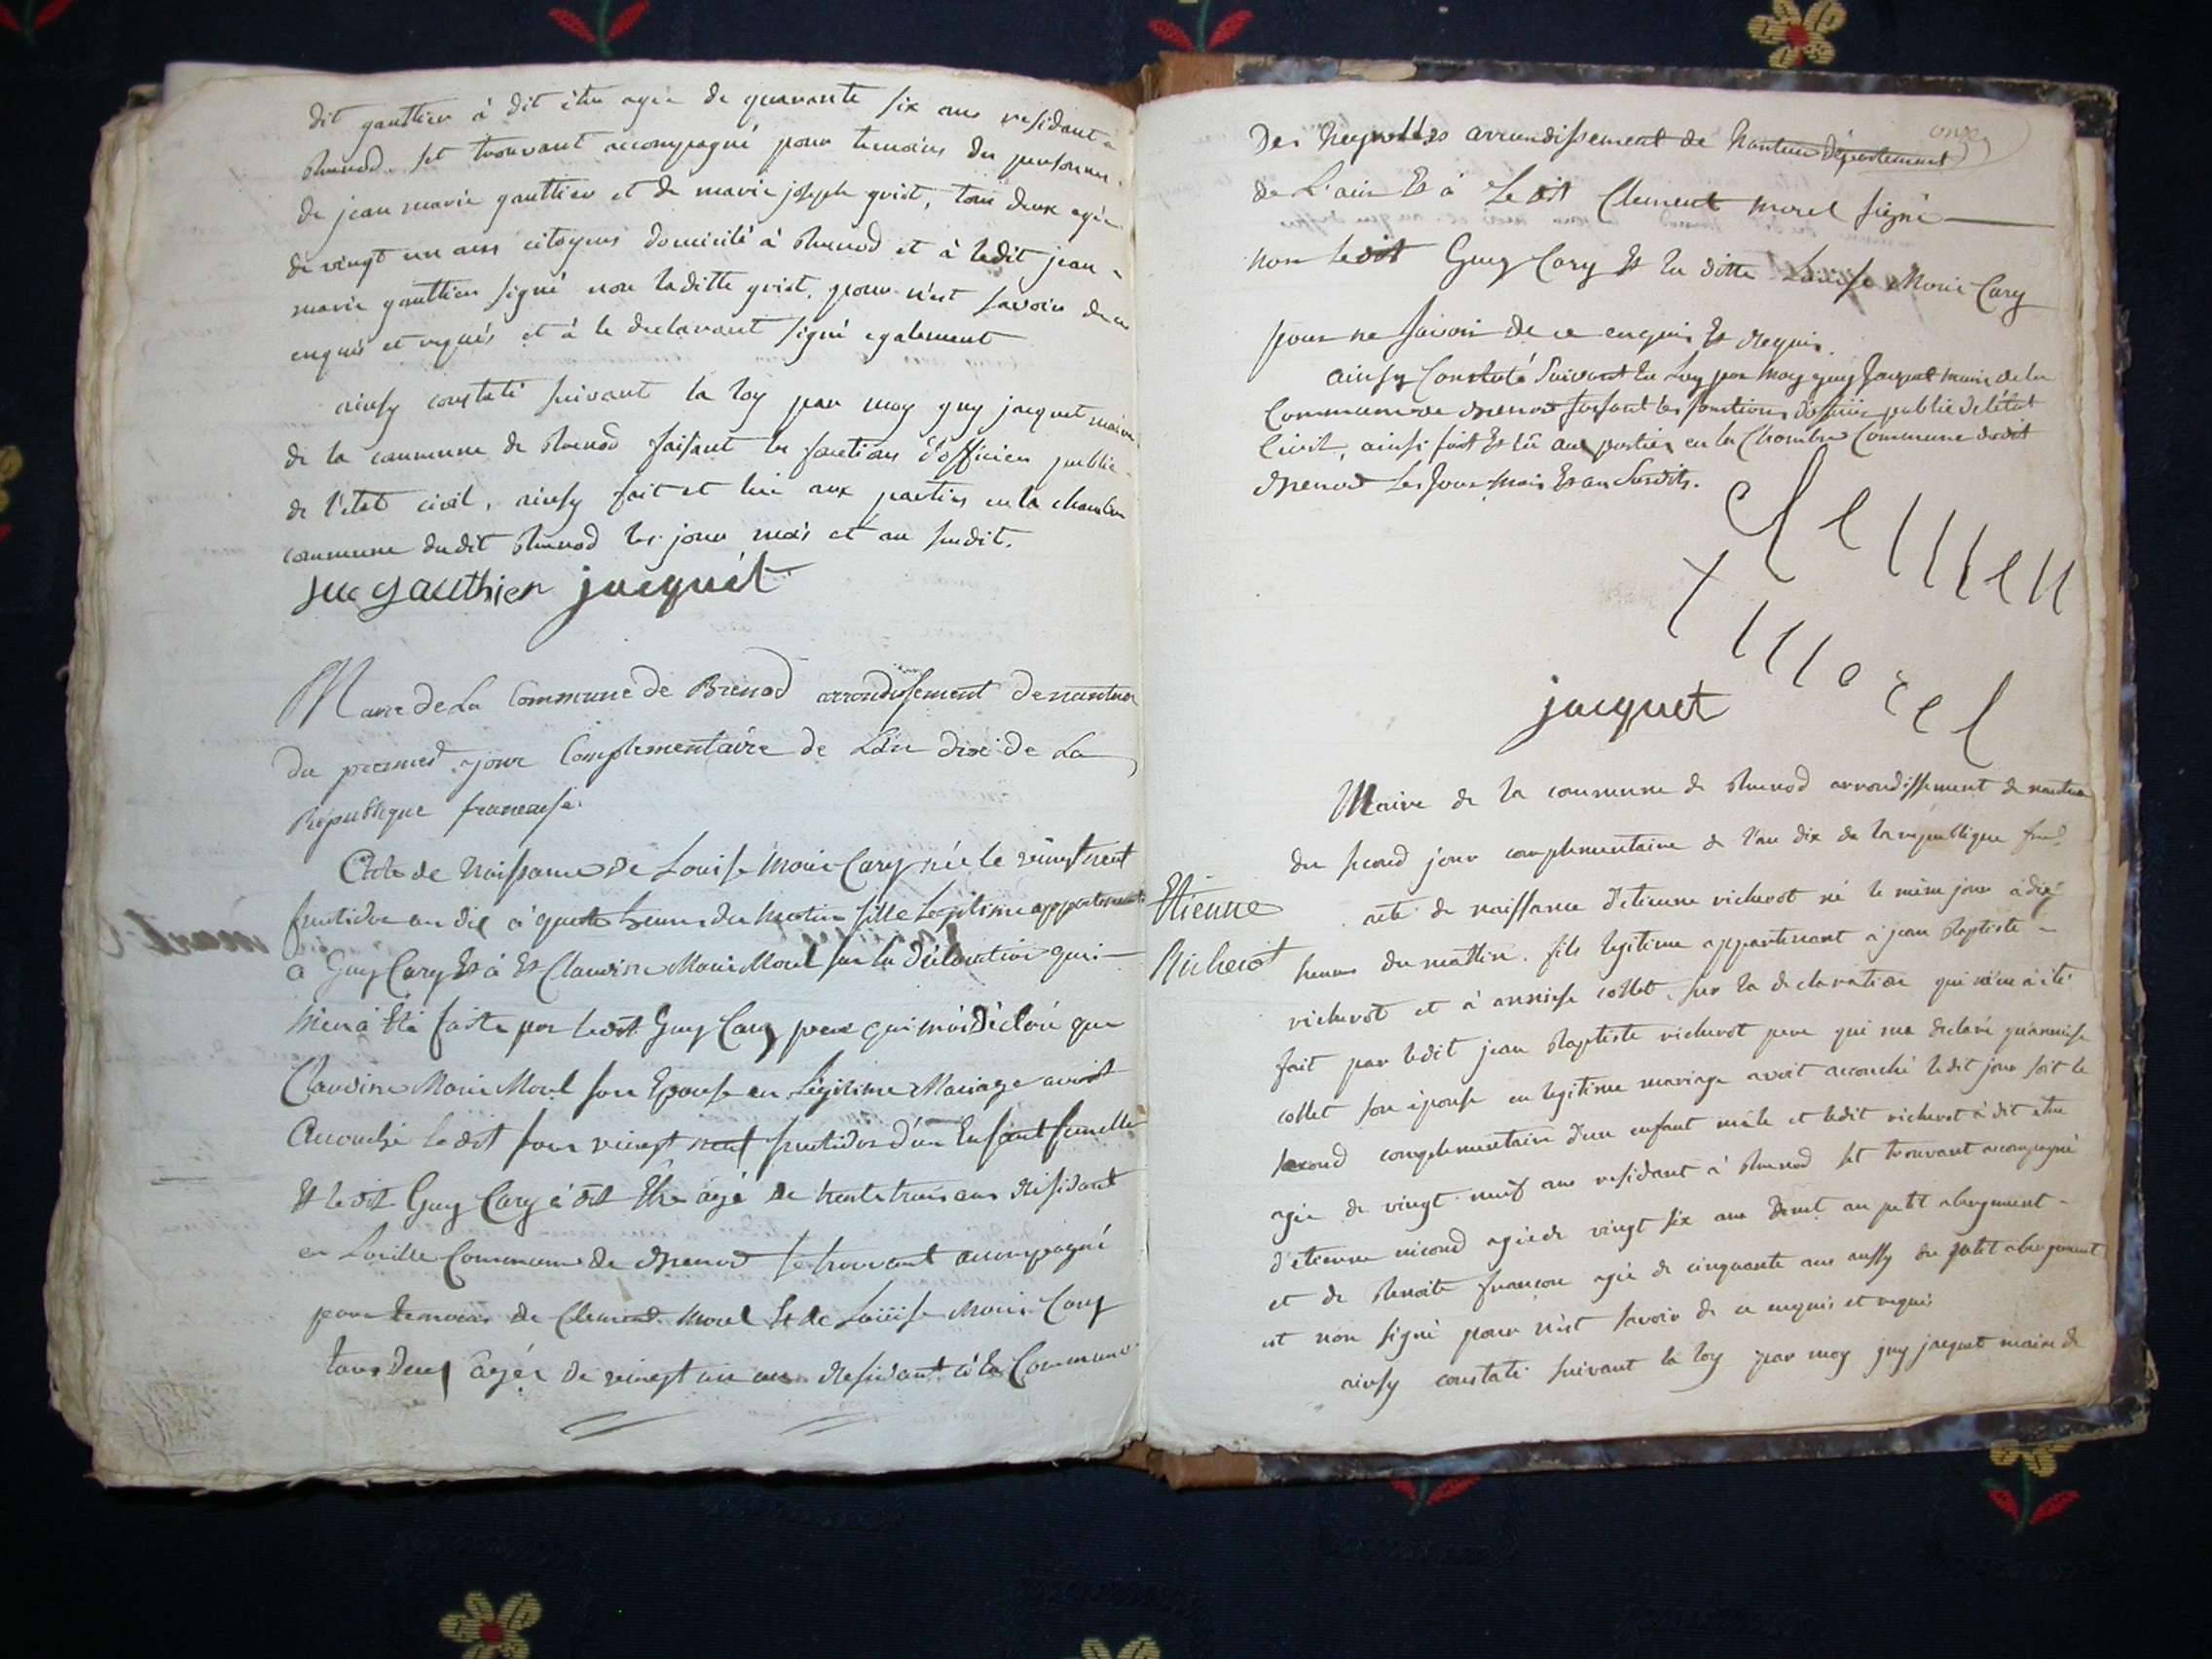 dit gauthier à dit être agée de quarante six ans residant à
Brenod. set trouvant accompagné pour temoins des personnes
de jean marie gauthier et de marie joseph grist, tous deux agée
de vingt un ans citoyens domicilié à Brenod et à ledit jean
marie gauthier signé non laditte grist. pour n'est savoir de ce
enquis et requis et à le declarant signé egalement
ainsy constaté suivant la loy par moy guy jacquet maire
de la commune de Brenod faisant les fonctions d'officier public
de l'état civil, ainsy fait et lu aux parties en la chambre
commune dudit Brenod les jour mois et an susdit.
gauthier jacquet
Marie de La Commune de Brenod arrondissement de nantua
du premier jour Complementaire de L'an dix de La
Republique francaise.
Acte de Naissance de Louise Marie Cary née le veingt neuf
fructidor an dix à quatre heures du matin fille Legitime appartenant
a Guy Cary Et à Et Claudine Marie Morel sur la Déclaration qui
m'en à Eté faite par ledit Guy Cary pere qui m'a Déclaré que
Claudine Marie Morel son Epouse en Légitime Mariage avoit
Accouché le dit jour veingt neuf fructidor d'un Enfant femelle
Et le dit Guy Cary à dit Être agé de trente trois ans Résidant
en Commune de Brenod se trouvant accompagné
pour temoins de Clement Morel Et de Louise Marie Cary
tous Deux agés de veingt un ans Residant à la Commune
onze
Des Neyrolles arrondissement de Nantua Département
de L'ain Et à Le dit Clement morel signé
non ledit Guy Cary Et la ditte Louise Marie Cary
pour ne savoir de ce enquis Et Requis.
ainsy Constaté Suivant la Loy par moy guy Jacquet maire de la
Commune de Brenod faisant les fonctions d'officier public de l'état
Civil, ainsi fait Et lû aux parties en la Chambre Commune dudit
Brenod Les Jour mois Et an Susdits.
Clemen
t morel
jacquet
Maire de la commune de Brenod arrondissement de nantua
du second jour complementaire de l'an dix de la republique
Etienne
Richerot
acte de naissance d'etienne richerot né le même jour à dix
heures du mattin. fils legitime appartenant a jean Baptiste
richerot et à collet. sur la declaration qui m'en à été
fait par ledit jean Baptiste richerot pere qui ma declaré
collet son épouse en legitime mariage avoit accouché ledit jour soit le
second complementaire d'un enfant mâle et ledit richerot à dit être
agée de vingt neuf ans residant à Brenod set trouvant accompagné
d'etienne agée de vingt six ans au petit abergement
et de Benoite françon agée de cinquante ans aussy du petit abergement
et non signé pour n'est savoir de ce enquis et requis
ainsy constaté suivant la loy par moy guy jacquet maire de